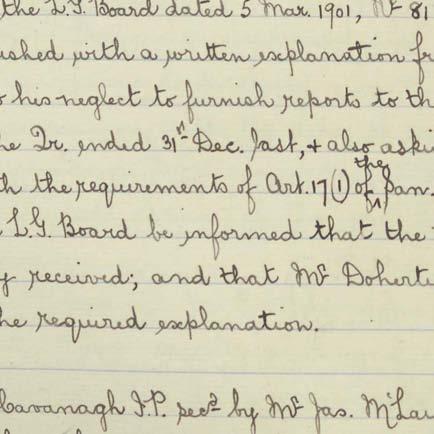 the L.G. Board dated 5 Mar. 1901, No 81
ished with a written explanation fr
o his neglect to furnish reports to th
he Qr. ended 31st Dec. last, & also aski
th the requirements of Art. 17(1) of the San.
L.G. Board be informed that the
y received; and that Mr Doherty
he required explanation.
Cavanagh J.P. secd by Mr Jas. McLau